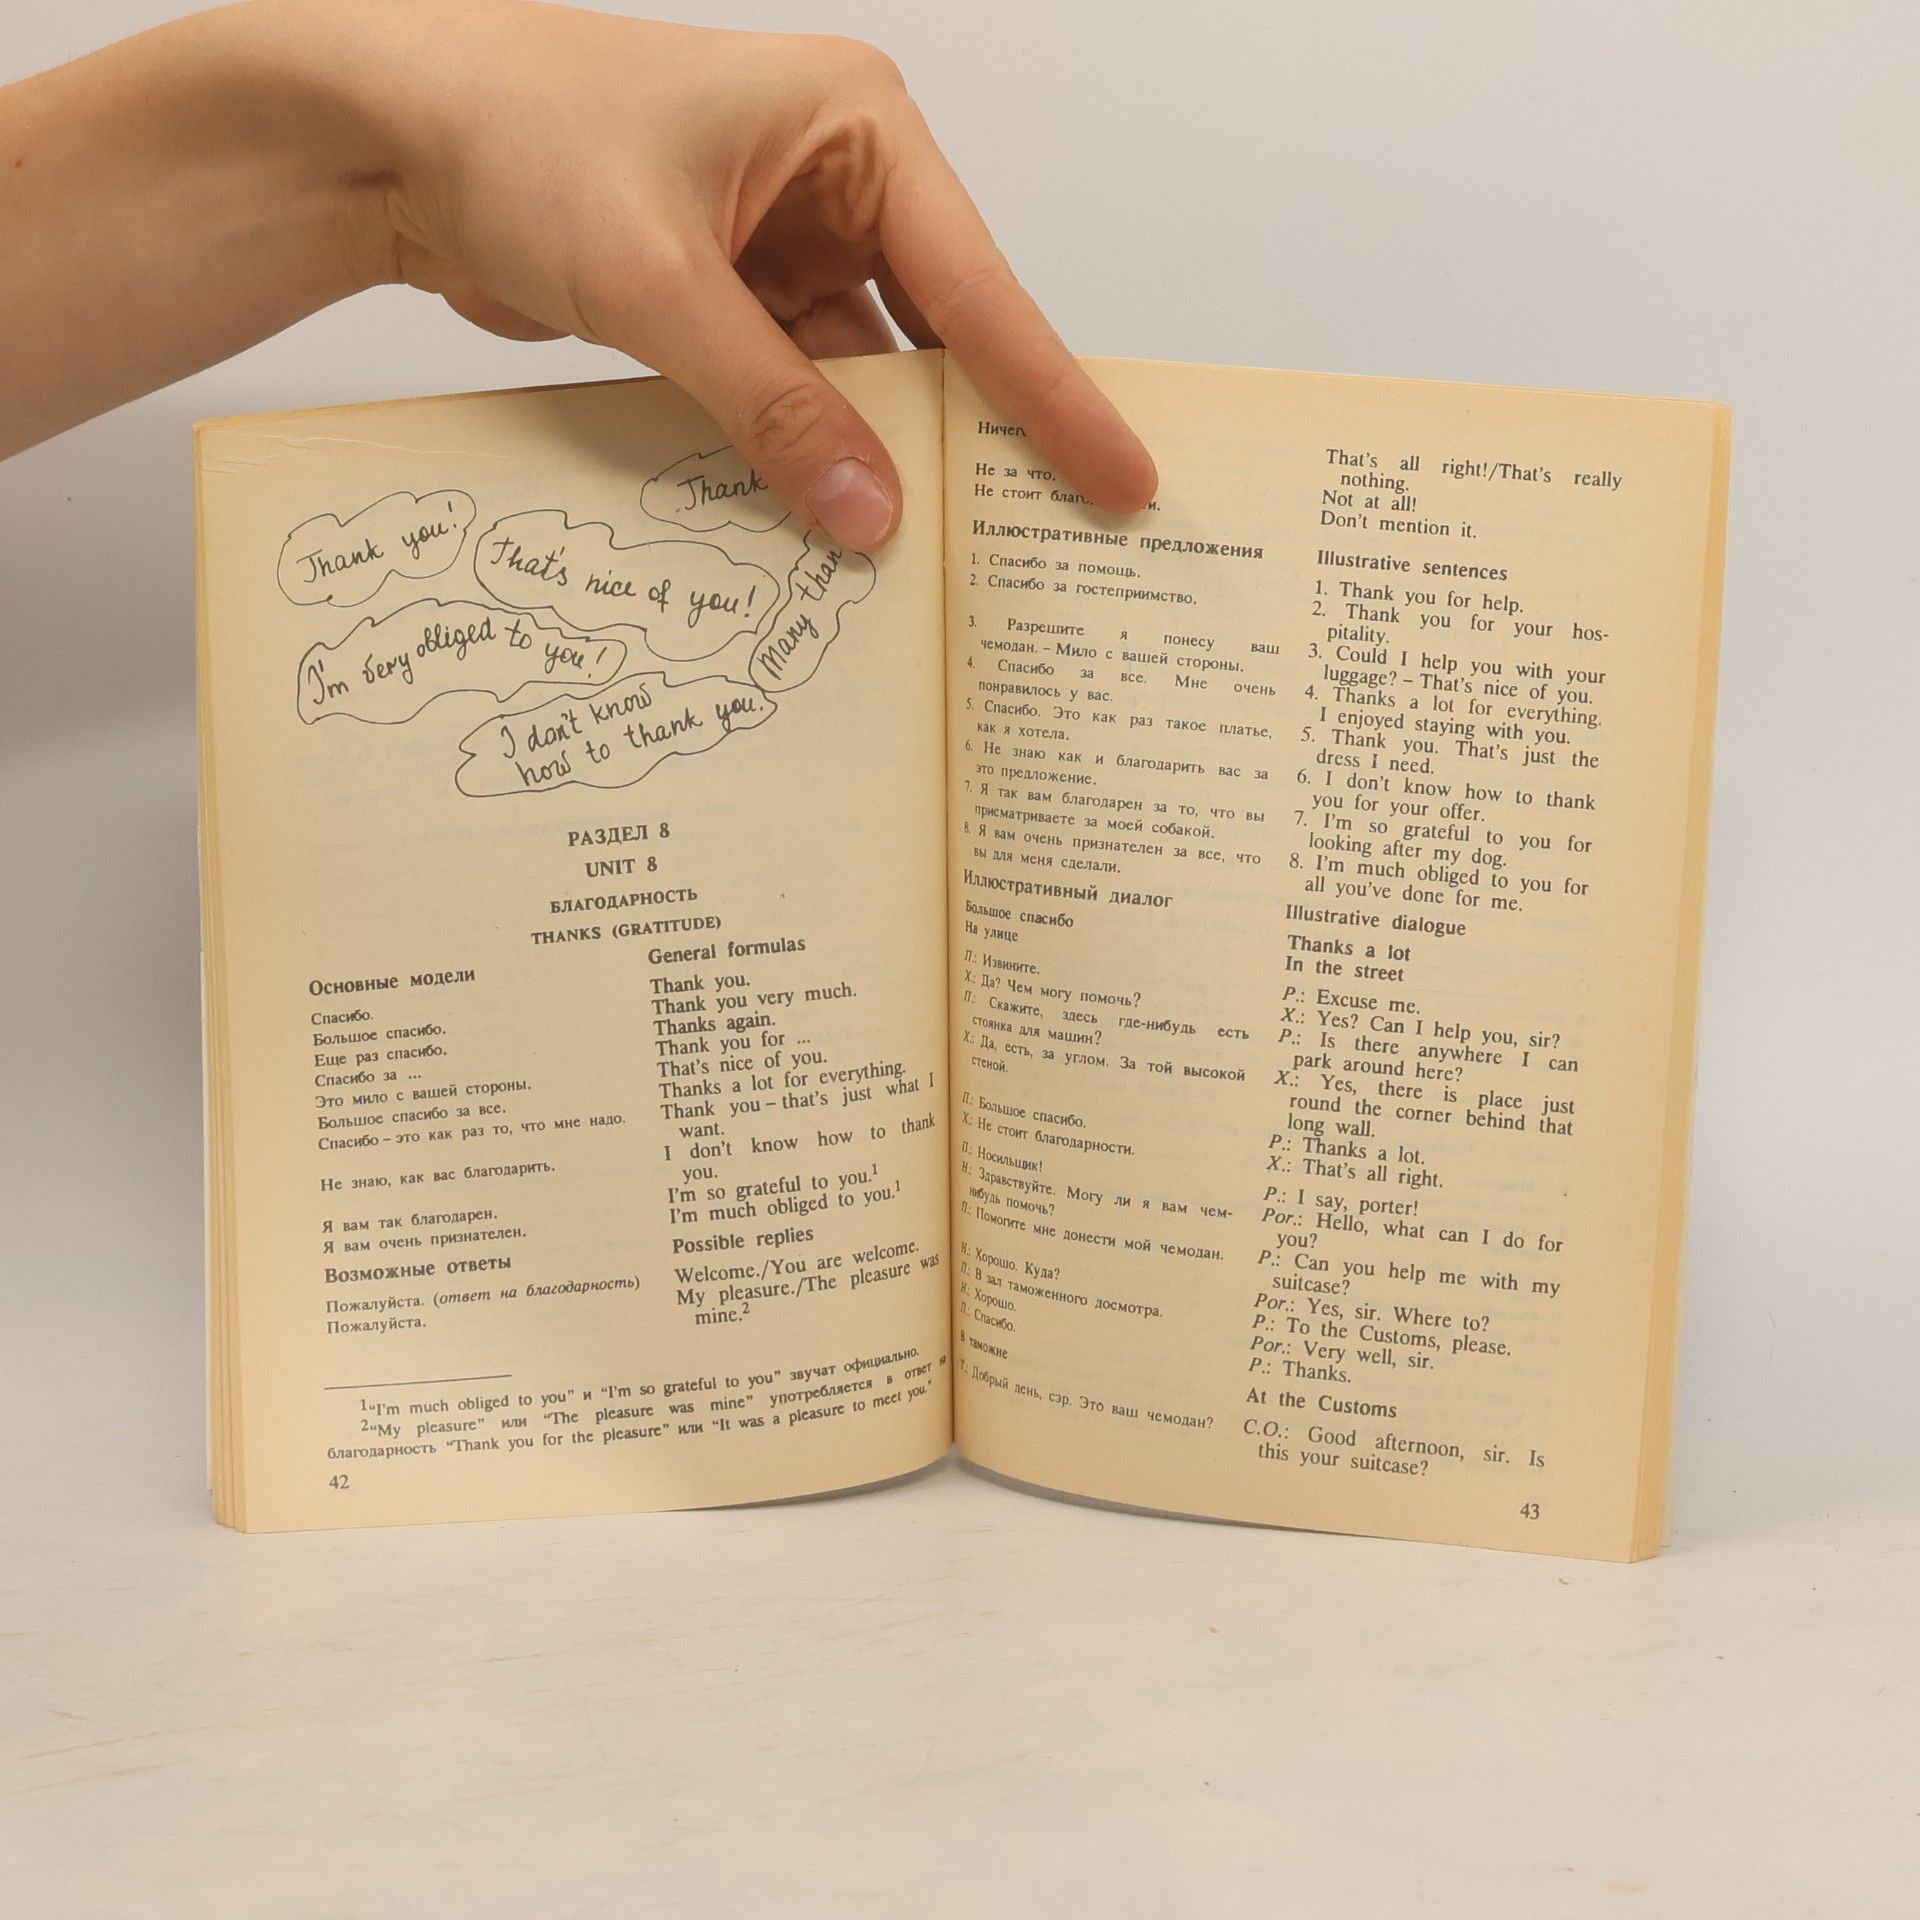 Thank you!
Thank
That's nice of you!
Many than
I'm very obliged to you!
I don't know
how to thank you.
РАЗДЕЛ 8
UNIT 8
БЛАГОДАРНОСТЬ
THANKS (GRATITUDE)
Основные модели
Спасибо.
Большое спасибо.
Еще раз спасибо.
Спасибо за ...
Это мило с вашей стороны.
Большое спасибо за все.
Спасибо – это как раз то, что мне надо.
Не знаю, как вас благодарить.
Я вам так благодарен.
Я вам очень признателен.
Возможные ответы
Пожалуйста. (ответ на благодарность)
Пожалуйста.
General formulas
Thank you.
Thank you very much.
Thanks again.
Thank you for ...
That's nice of you.
Thanks a lot for everything.
Thank you – that's just what I
want.
I don't know how to thank
you.
I'm so grateful to you.1
I'm much obliged to you.1
Possible replies
Welcome./You are welcome.
My pleasure./The pleasure was
mine.2
1“I'm much obliged to you” и “I'm so grateful to you” звучат официально.
2“My pleasure” или “The pleasure was mine” употребляется в ответ на
благодарность “Thank you for the pleasure” или “It was a pleasure to meet you.”
42
Не за что.
Не стоит
Иллюстративные предложения
1. Спасибо за помощь.
2. Спасибо за гостеприимство.
3. Разрешите я понесу ваш
чемодан. – Мило с вашей стороны.
4. Спасибо за все. Мне очень
понравилось у вас.
5. Спасибо. Это как раз такое платье,
как я хотела.
6. Не знаю как и благодарить вас за
это предложение.
7. Я так вам благодарен за то, что вы
присматриваете за моей собакой.
8. Я вам очень признателен за все, что
вы для меня сделали.
Иллюстративный диалог
Большое спасибо
На улице
П.: Извините.
Х.: Да? Чем могу помочь?
П.: Скажите, здесь где-нибудь есть
стоянка для машин?
Х.: Да, есть, за углом. За той высокой
стеной.
П.: Большое спасибо.
Х.: Не стоит благодарности.
П.: Носильщик!
Н.: Здравствуйте. Могу ли я вам чем-
нибудь помочь?
П.: Помогите мне донести мой чемодан.
Н.: Хорошо. Куда?
П.: В зал таможенного досмотра.
Н.: Хорошо.
П.: Спасибо.
В таможне
Т.: Добрый день, сэр. Это ваш чемодан?
That's all right!/That's really
nothing.
Not at all!
Don't mention it.
Illustrative sentences
1. Thank you for help.
2. Thank you for your hos-
pitality.
3. Could I help you with your
luggage? – That's nice of you.
4. Thanks a lot for everything.
I enjoyed staying with you.
5. Thank you. That's just the
dress I need.
6. I don't know how to thank
you for your offer.
7. I'm so grateful to you for
looking after my dog.
8. I'm much obliged to you for
all you've done for me.
Illustrative dialogue
Thanks a lot
In the street
P.: Excuse me.
X.: Yes? Can I help you, sir?
P.: Is there anywhere I can
park around here?
X.: Yes, there is place just
round the corner behind that
long wall.
P.: Thanks a lot.
X.: That's all right.
P.: I say, porter!
Por.: Hello, what can I do for
you?
P.: Can you help me with my
suitcase?
Por.: Yes, sir. Where to?
P.: To the Customs, please.
Por.: Very well, sir.
P.: Thanks.
At the Customs
C.O.: Good afternoon, sir. Is
this your suitcase?
43